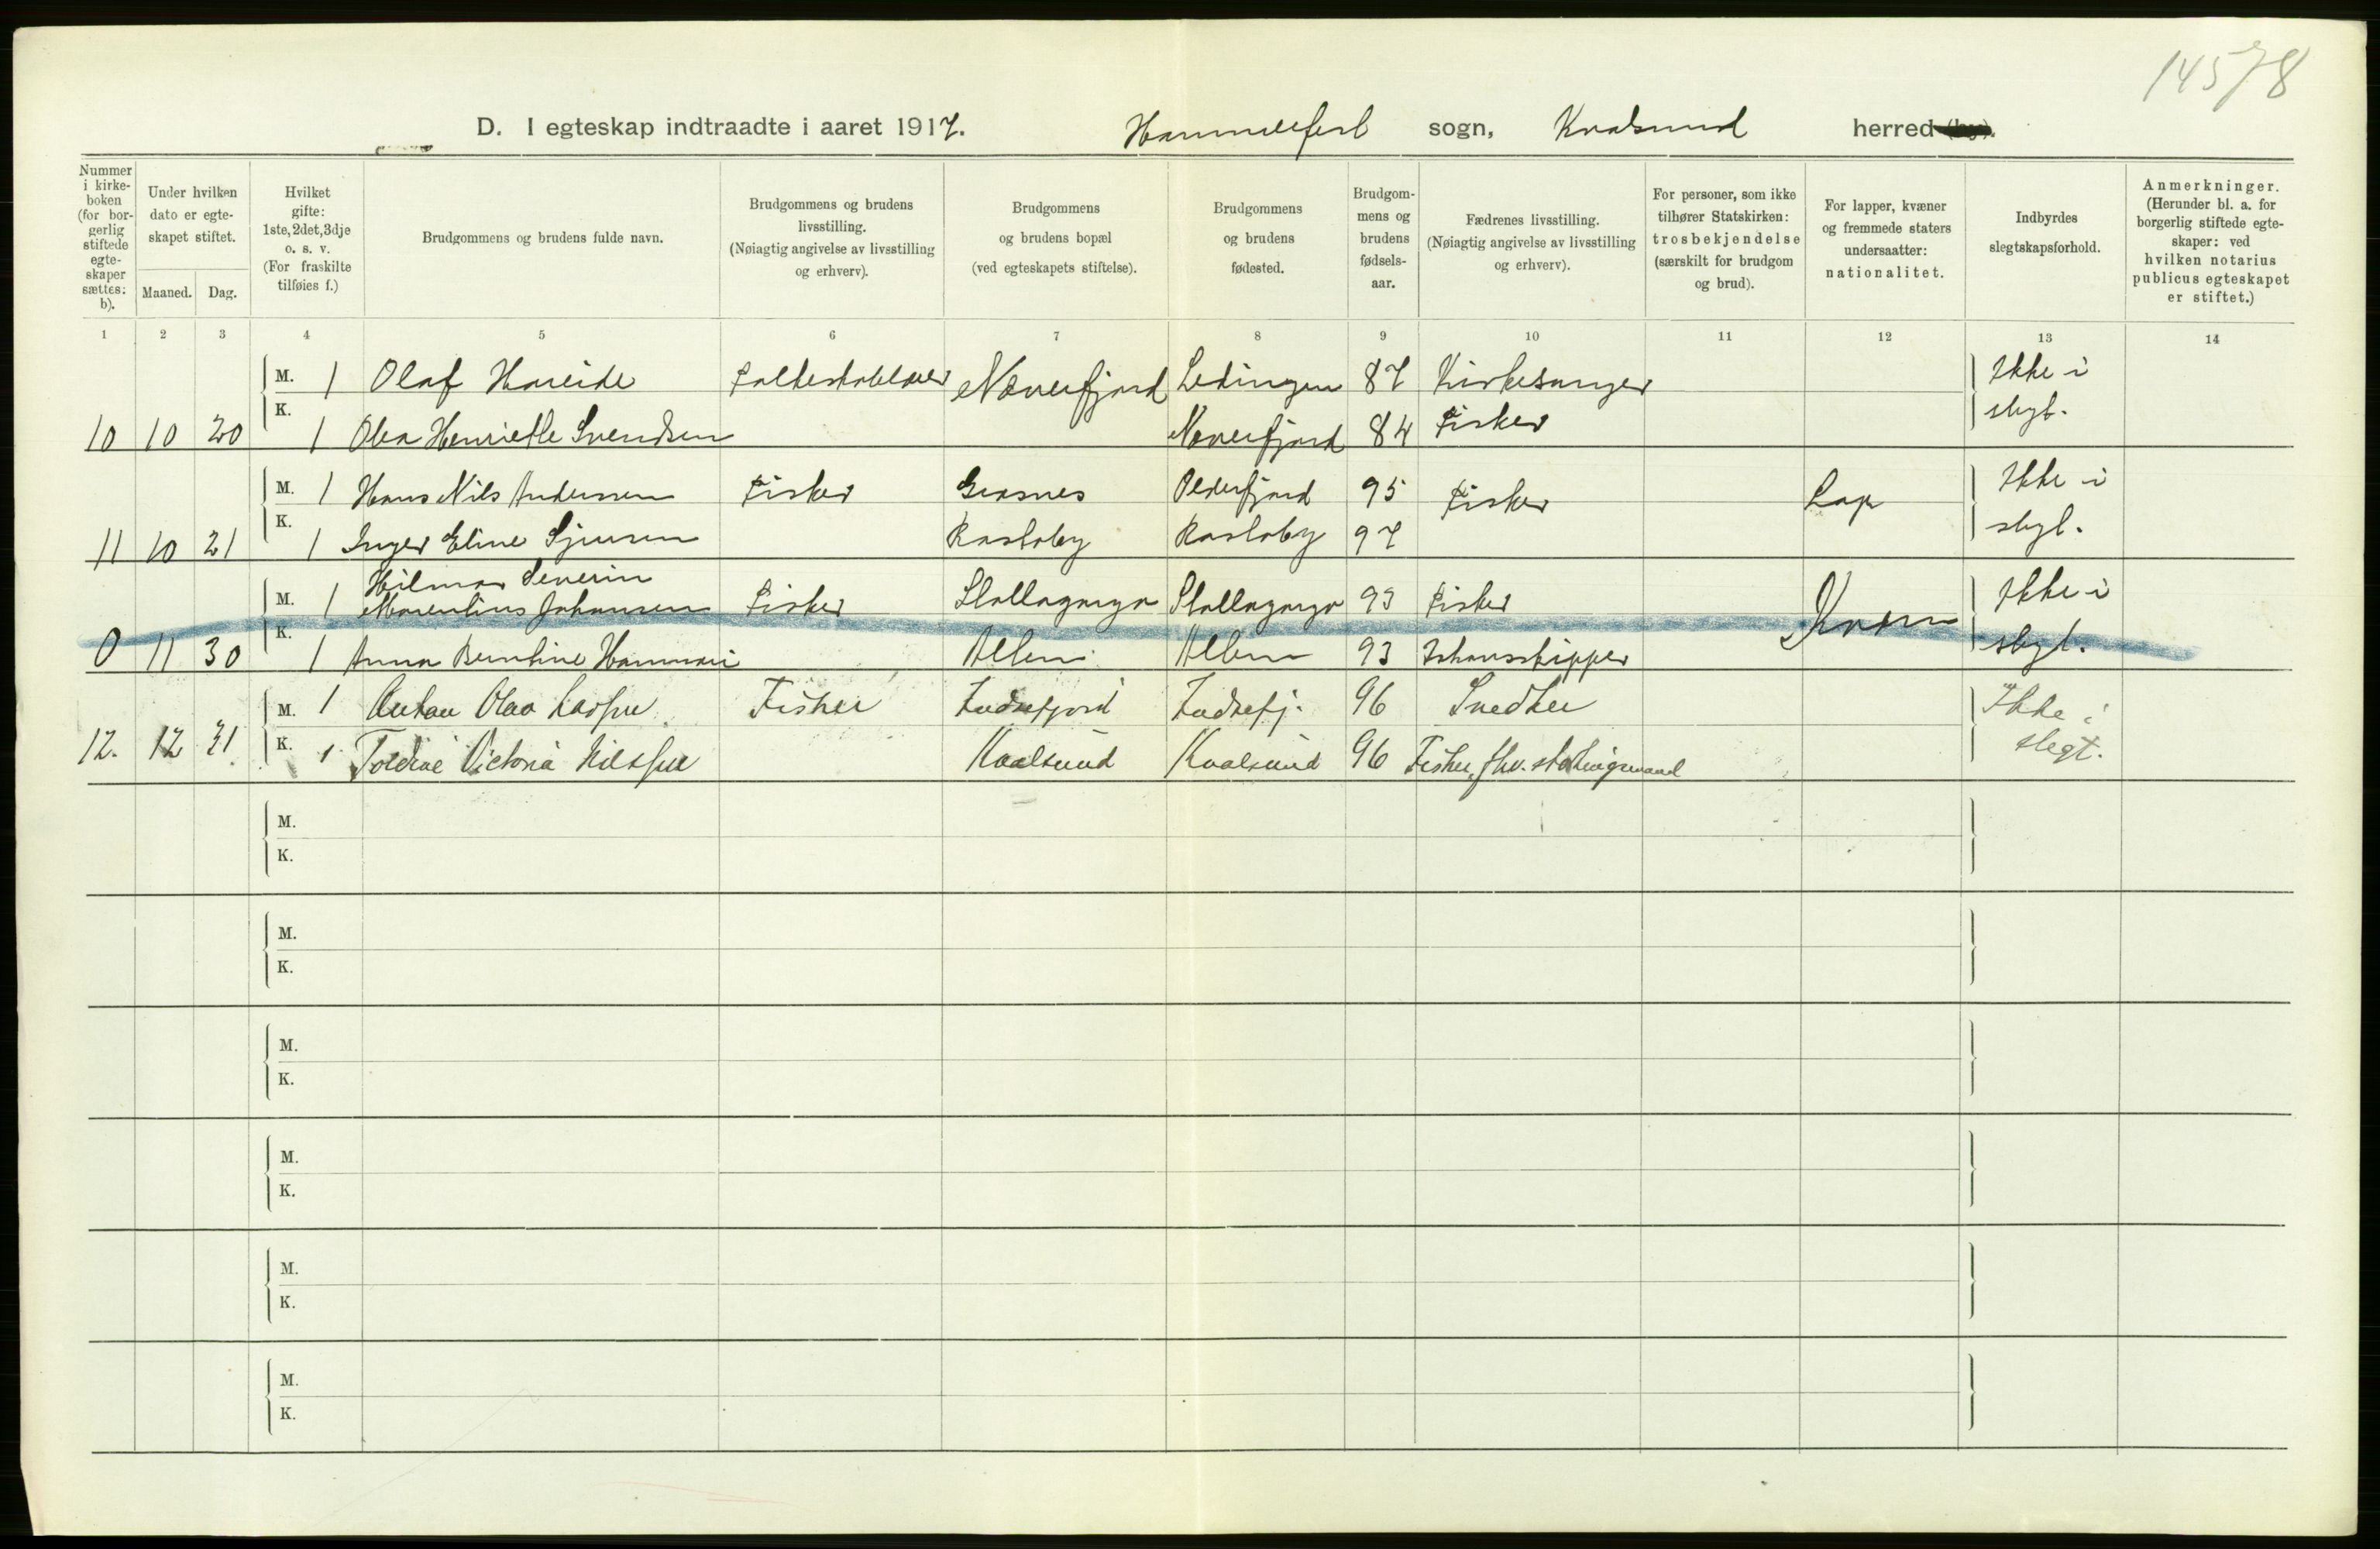 14578
D. I egteskap indtraadte i aaret 1917. Hammerfest sogn, Kvalsund herred (by).
Nummer i kirke- boken (for bor- gerlig stiftede egte- skaper sættes: b).
Under hvilken dato er egte- skapet stiftet.
Maaned. Dag.
Hvilket gifte: 1ste, 2det, 3dje o. s. v. (For fraskilte tilføies f.)
Brudgommens og brudens fulde navn.
Brudgommens og brudens livsstilling. (Nøiagtig angivelse av livsstilling og erhverv).
Brudgommens og brudens bopæl (ved egteskapets stiftelse).
Brudgommens og brudens fødested.
Brudgom- mens og brudens fødsels- aar.
Fædrenes livsstilling. (Nøiagtig angivelse av livsstilling og erhverv).
For personer, som ikke tilhører Statskirken: trosbekjendelse (særskilt for brudgom og brud).
For lapper, kvæner og fremmede staters undersaatter: nationalitet.
Indbyrdes slegtskapsforhold.
Anmerkninger. (Herunder bl. a. for borgerlig stiftede egte- skaper: ved hvilken notarius publicus egteskapet er stiftet.)
1 2 3 4 5 6 7 8 9 10 11 12 13 14
M. 1 Olaf Hareide Næverfjord Lødingen 87 Kirkesanger Ikke i
10 10 20 K. 1 Olea Henriette Svendsen Næverfjord 84 Fisker slegt.
M. 1 Hans Nils Anderssen Fisker Grasnes Olderfjord 95 Fisker Lap Ikke i
11 10 21 K. 1 Inger Eline Sjursen Rastaby Rastaby 97 slegt.
Hilmar Severin
M. 1 Marentius Johansen Fisker Stallogargo Stallogargo 93 Fisker Kvæn Ikke i
0 11 30 K. 1 Anna Berntine Hammari 93 Ishavsskipper slegt.
M. 1 Anton Olav Fisker 96 Snedker Ikke i
12. 12 31. K. 1 Victoria Nilssen Kvalsund Kvalsund 96 Fisker, fhv. slegt.
M.
K.
M.
K.
M.
K.
M.
K.
M.
K.
M.
K.